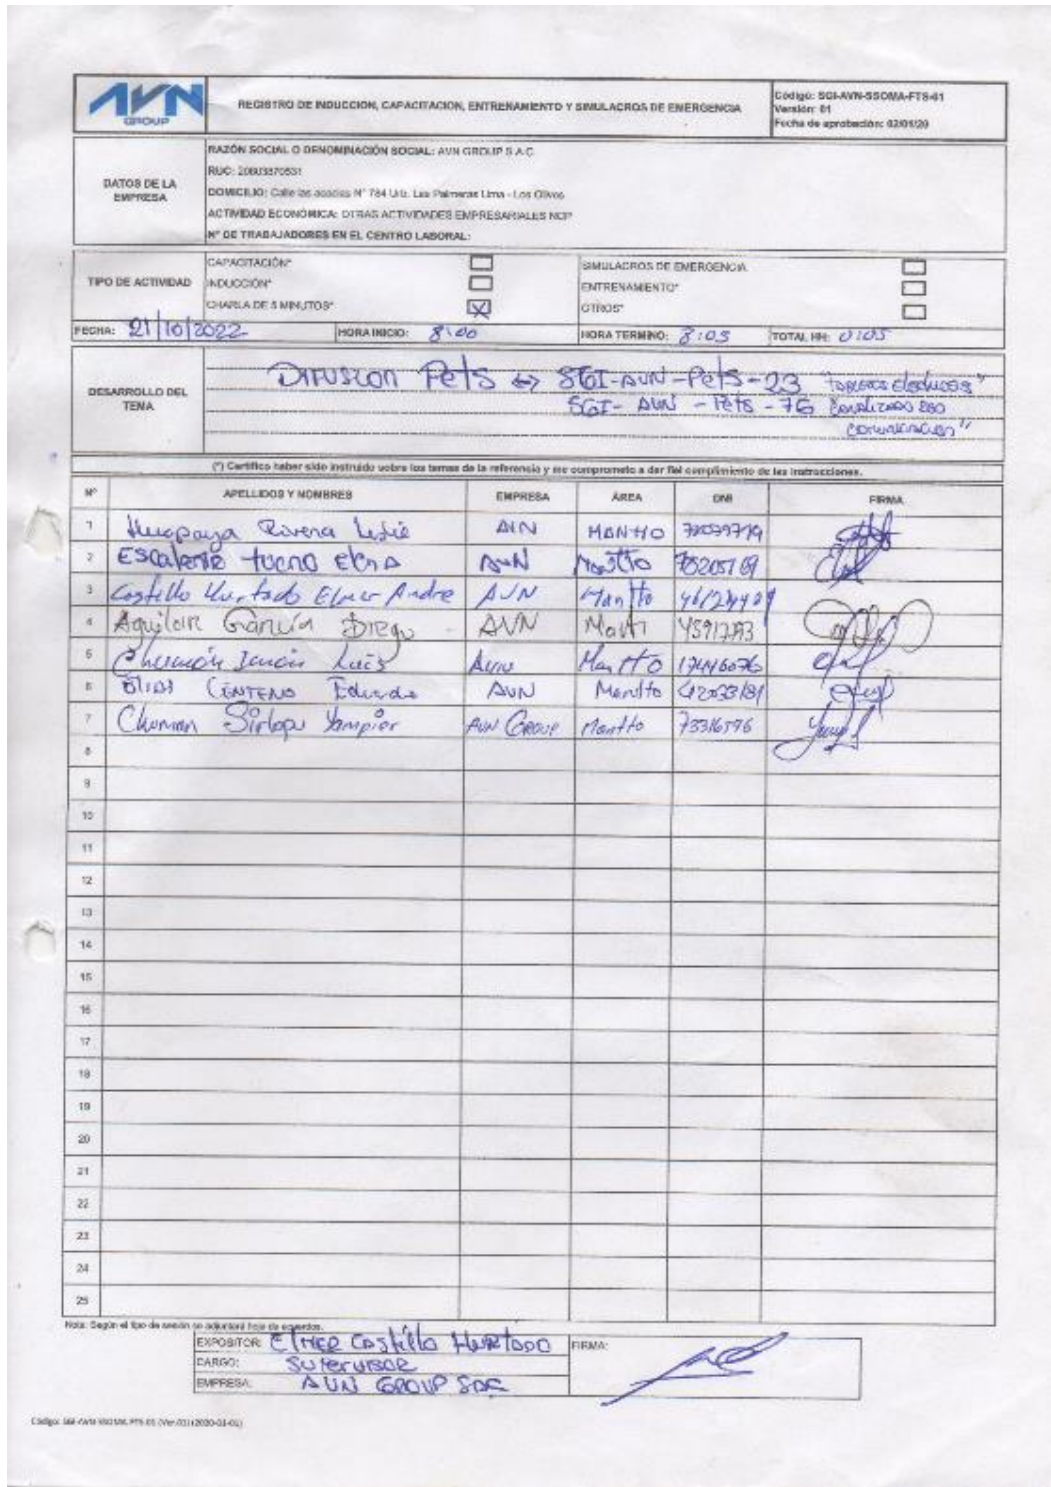 AVN
GROUP
REGISTRO DE INDUCCION, CAPACITACION, ENTRENAMIENTO Y SIMULACROS DE EMERGENCIA
Código: SGI-AVN-SSOMA-FTS-01
Versión: 01
Fecha de aprobación: 02/01/20
DATOS DE LA EMPRESA
RAZÓN SOCIAL O DENOMINACIÓN SOCIAL: AVN GROUP S.A.C
RUC: 20603870531
DOMICILIO: Calle las acacias N° 784 Urb. Las Palmeras Lima - Los Olivos
ACTIVIDAD ECONÓMICA: OTRAS ACTIVIDADES EMPRESARIALES NCP
N° DE TRABAJADORES EN EL CENTRO LABORAL:
TIPO DE ACTIVIDAD
CAPACITACIÓN*
INDUCCIÓN*
CHARLA DE 5 MINUTOS* X
SIMULACROS DE EMERGENCIA
ENTRENAMIENTO*
OTROS*
FECHA: 21/10/2022 HORA INICIO: 8:00 HORA TERMINO: 8:05 TOTAL HH: 0:05
DESARROLLO DEL TEMA
DIFUSION Pets <-> SGI-AVN-Pets-23 "tableros electricos"
SGI-AVN-Pets-76
comunicacion"
(*) Certifico haber sido instruido sobre los temas de la referencia y me comprometo a dar fiel cumplimiento de las instrucciones.
N° APELLIDOS Y NOMBRES EMPRESA ÁREA DNI FIRMA
1 Huapaya Rivera Leslie AVN MANTTO
2 Escalante AVN Mantto
3 Castillo Hurtado Elmer Andre AVN Mantto
4 Aguilar García Diego AVN Mantt
5 Luis AVN Mantto 17446076
6 Elias CENTENO Eduardo AVN Mantto
7 Chuman Sirlopu Yampier AVN GROUP Mantto 73316596
8
9
10
11
12
13
14
15
16
17
18
19
20
21
22
23
24
25
Nota: Según el tipo de sesión se adjuntará hoja de acuerdos.
EXPOSITOR: ElMER CAStillo HURTADO FIRMA:
CARGO: SUPERVISOR
EMPRESA: AVN GROUP SAC
Código: SGI-AVN-SSOMA-FTS-01 (Ver.01) (2020-01-02)